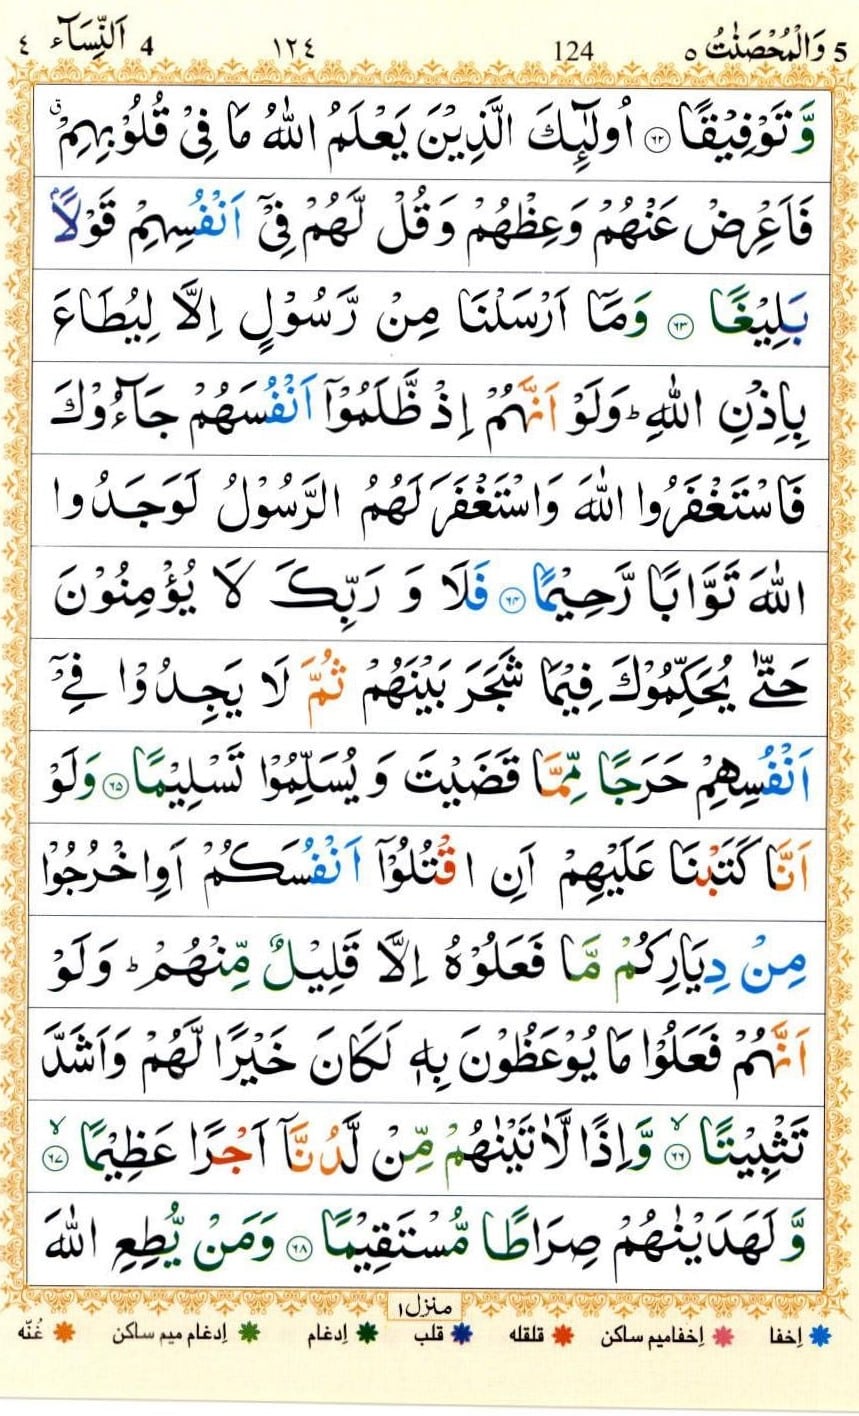 5 وَالْمُحْصَنٰتُ ٥ 124 ١٢٤ 4 اَلنِّسَآء ٤
وَّ تَوْفِيْقًا ۝٦٢ اُولٰٓئِكَ الَّذِيْنَ يَعْلَمُ اللّٰهُ مَا فِيْ قُلُوْبِهِمْ ۗ
فَاَعْرِضْ عَنْهُمْ وَعِظْهُمْ وَقُلْ لَّهُمْ فِيْٓ اَنْفُسِهِمْ قَوْلًاۢ
بَلِيْغًا ۝٦٣ وَمَآ اَرْسَلْنَا مِنْ رَّسُوْلٍ اِلَّا لِيُطَاعَ
بِاِذْنِ اللّٰهِ ؕ وَلَوْ اَنَّهُمْ اِذْ ظَّلَمُوْٓا اَنْفُسَهُمْ جَآءُوْكَ
فَاسْتَغْفَرُوا اللّٰهَ وَاسْتَغْفَرَ لَهُمُ الرَّسُوْلُ لَوَجَدُوا
اللّٰهَ تَوَّابًا رَّحِيْمًا ۝٦٤ فَلَا وَ رَبِّكَ لَا يُؤْمِنُوْنَ
حَتّٰى يُحَكِّمُوْكَ فِيْمَا شَجَرَ بَيْنَهُمْ ثُمَّ لَا يَجِدُوْا فِيْٓ
اَنْفُسِهِمْ حَرَجًا مِّمَّا قَضَيْتَ وَ يُسَلِّمُوْا تَسْلِيْمًا ۝٦٥ وَلَوْ
اَنَّا كَتَبْنَا عَلَيْهِمْ اَنِ اقْتُلُوْٓا اَنْفُسَكُمْ اَوِ اخْرُجُوْا
مِنْ دِيَارِكُمْ مَّا فَعَلُوْهُ اِلَّا قَلِيْلٌ مِّنْهُمْ ؕ وَلَوْ
اَنَّهُمْ فَعَلُوْا مَا يُوْعَظُوْنَ بِهٖ لَكَانَ خَيْرًا لَّهُمْ وَاَشَدَّ
تَثْبِيْتًا ۙ۝٦٦ وَّاِذًا لَّاٰتَيْنٰهُمْ مِّنْ لَّدُنَّآ اَجْرًا عَظِيْمًا ۙ۝٦٧
وَّ لَهَدَيْنٰهُمْ صِرَاطًا مُّسْتَقِيْمًا ۝٦٨ وَمَنْ يُّطِعِ اللّٰهَ
منزل ١
اِخفا اِخفا میم ساکن قلقله قلب اِدغام اِدغام میم ساکن غُنّه